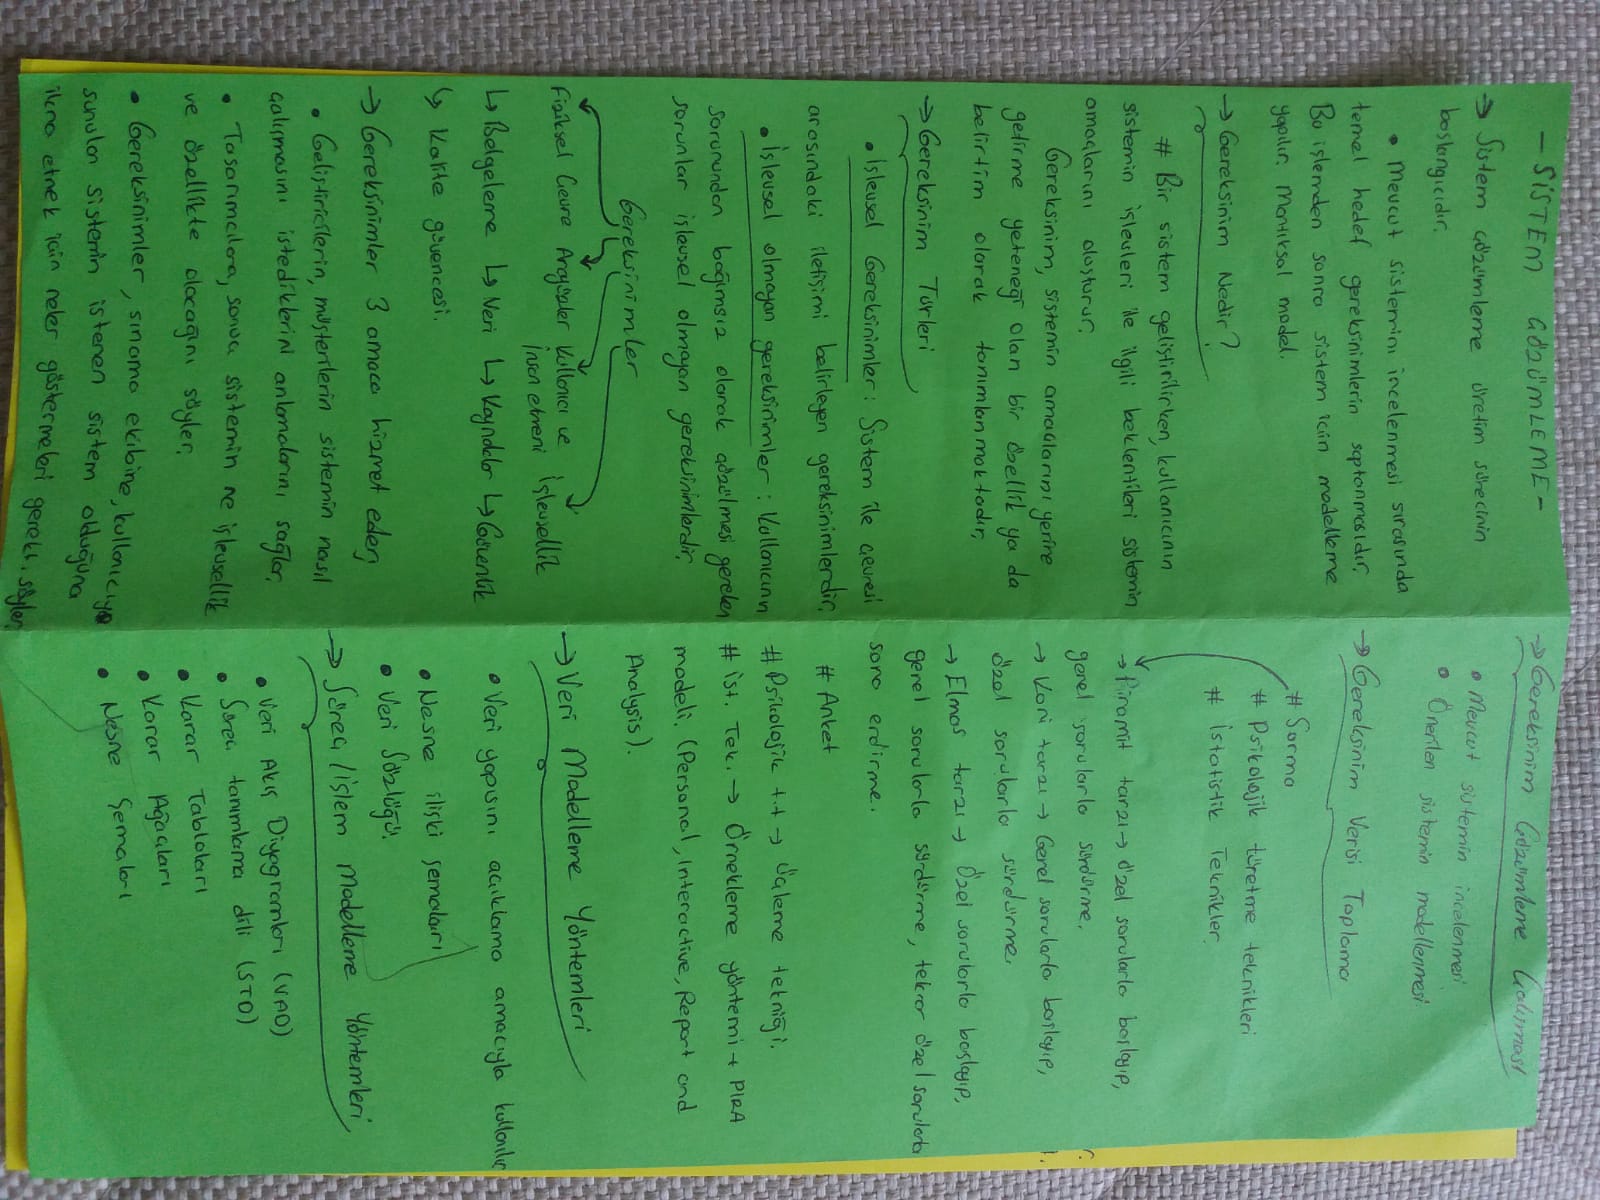 - SİSTEM ÇÖZÜMLEME -
→ Sistem çözümleme üretim sürecinin
başlangıcıdır.
• Mevcut sistemini incelenmesi sırasında
temel hedef gereksinimlerin saptanmasıdır.
Bu işlemden sonra sistem için modelleme
yapılır. Mantıksal model.
→ Gereksinim Nedir?
# Bir sistem geliştirilirken, kullanıcının
sistemin işlevleri ile ilgili beklentileri sistemin
amaçlarını oluşturur.
Gereksinim, sistemin amaçlarını yerine
getirme yeteneği olan bir özellik ya da
belirtim olarak tanımlanmaktadır.
→ Gereksinim Türleri
• İşlevsel Gereksinimler: Sistem ile çevresi
arasındaki iletişimi belirleyen gereksinimlerdir.
• İşlevsel olmayan gereksinimler: Kullanıcının
sorunundan bağımsız olarak çözülmesi gereken
sorunlar işlevsel olmayan gereksinimlerdir.
Gereksinimler
Fiziksel Çevre Arayüzler Kullanıcı ve
İnsan etmeni İşlevsellik
↳ Belgeleme ↳ Veri ↳ Kaynaklar ↳ Güvenlik
↳ Kalite güvencesi.
→ Gereksinimler 3 amaca hizmet eder;
• Geliştiricilerin, müşterilerin sistemin nasıl
çalışmasını istediklerini anlamalarını sağlar.
• Tasarımcılara, sonuç sistemin ne işlevsellik
ve özellikte olacağını söyler.
• Gereksinimler, sınama ekibine, kullanıcıya
sunulan sistemin istenen sistem olduğuna
ikna etmek için neler göstermeleri gerekt. söyler.
→ Gereksinim Çözümleme Çalışması
• Mevcut sistemin incelenmesi
• Önerilen sistemin modellenmesi
→ Gereksinim Verisi Toplama
# Sorma
# Psikolojik türetme teknikleri
# İstatistik Teknikler.
→ Piramit tarzı → özel sorularla başlayıp,
genel sorularla sürdürme.
→ Koni tarzı → Genel sorularla başlayıp,
özel sorularla sürdürme.
→ Elmas tarzı → Özel sorularla başlayıp,
genel sorularla sürdürme, tekrar özel sorularla
sona erdirme.
# Anket
# Psikolojik t.t → Üçleme tekniği.
# ist. Tek. → Örnekleme yöntemi + PIRA
modeli. (Personal, Interactive, Report and
Analysis).
→ Veri Modelleme Yöntemleri
• Veri yapısını açıklama amacıyla kullanılır
• Nesne ilişki şemaları
• Veri Sözlüğü.
→ Süreç/İşlem Modelleme Yöntemleri
• Veri Akış Diyagramları (VAD)
• Süreç tanımlama dili (STD)
• Karar Tabloları
• Karar Ağaçları
• Nesne Şemaları